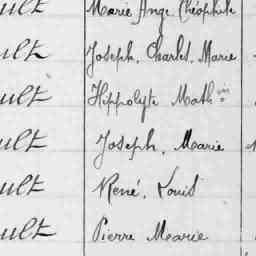 ult Marie Ange Théophile
ult Joseph, Charles, Marie
ult Hippolyte Math in
ult Joseph, Marie
ult René, Louis
ult Pierre Marie